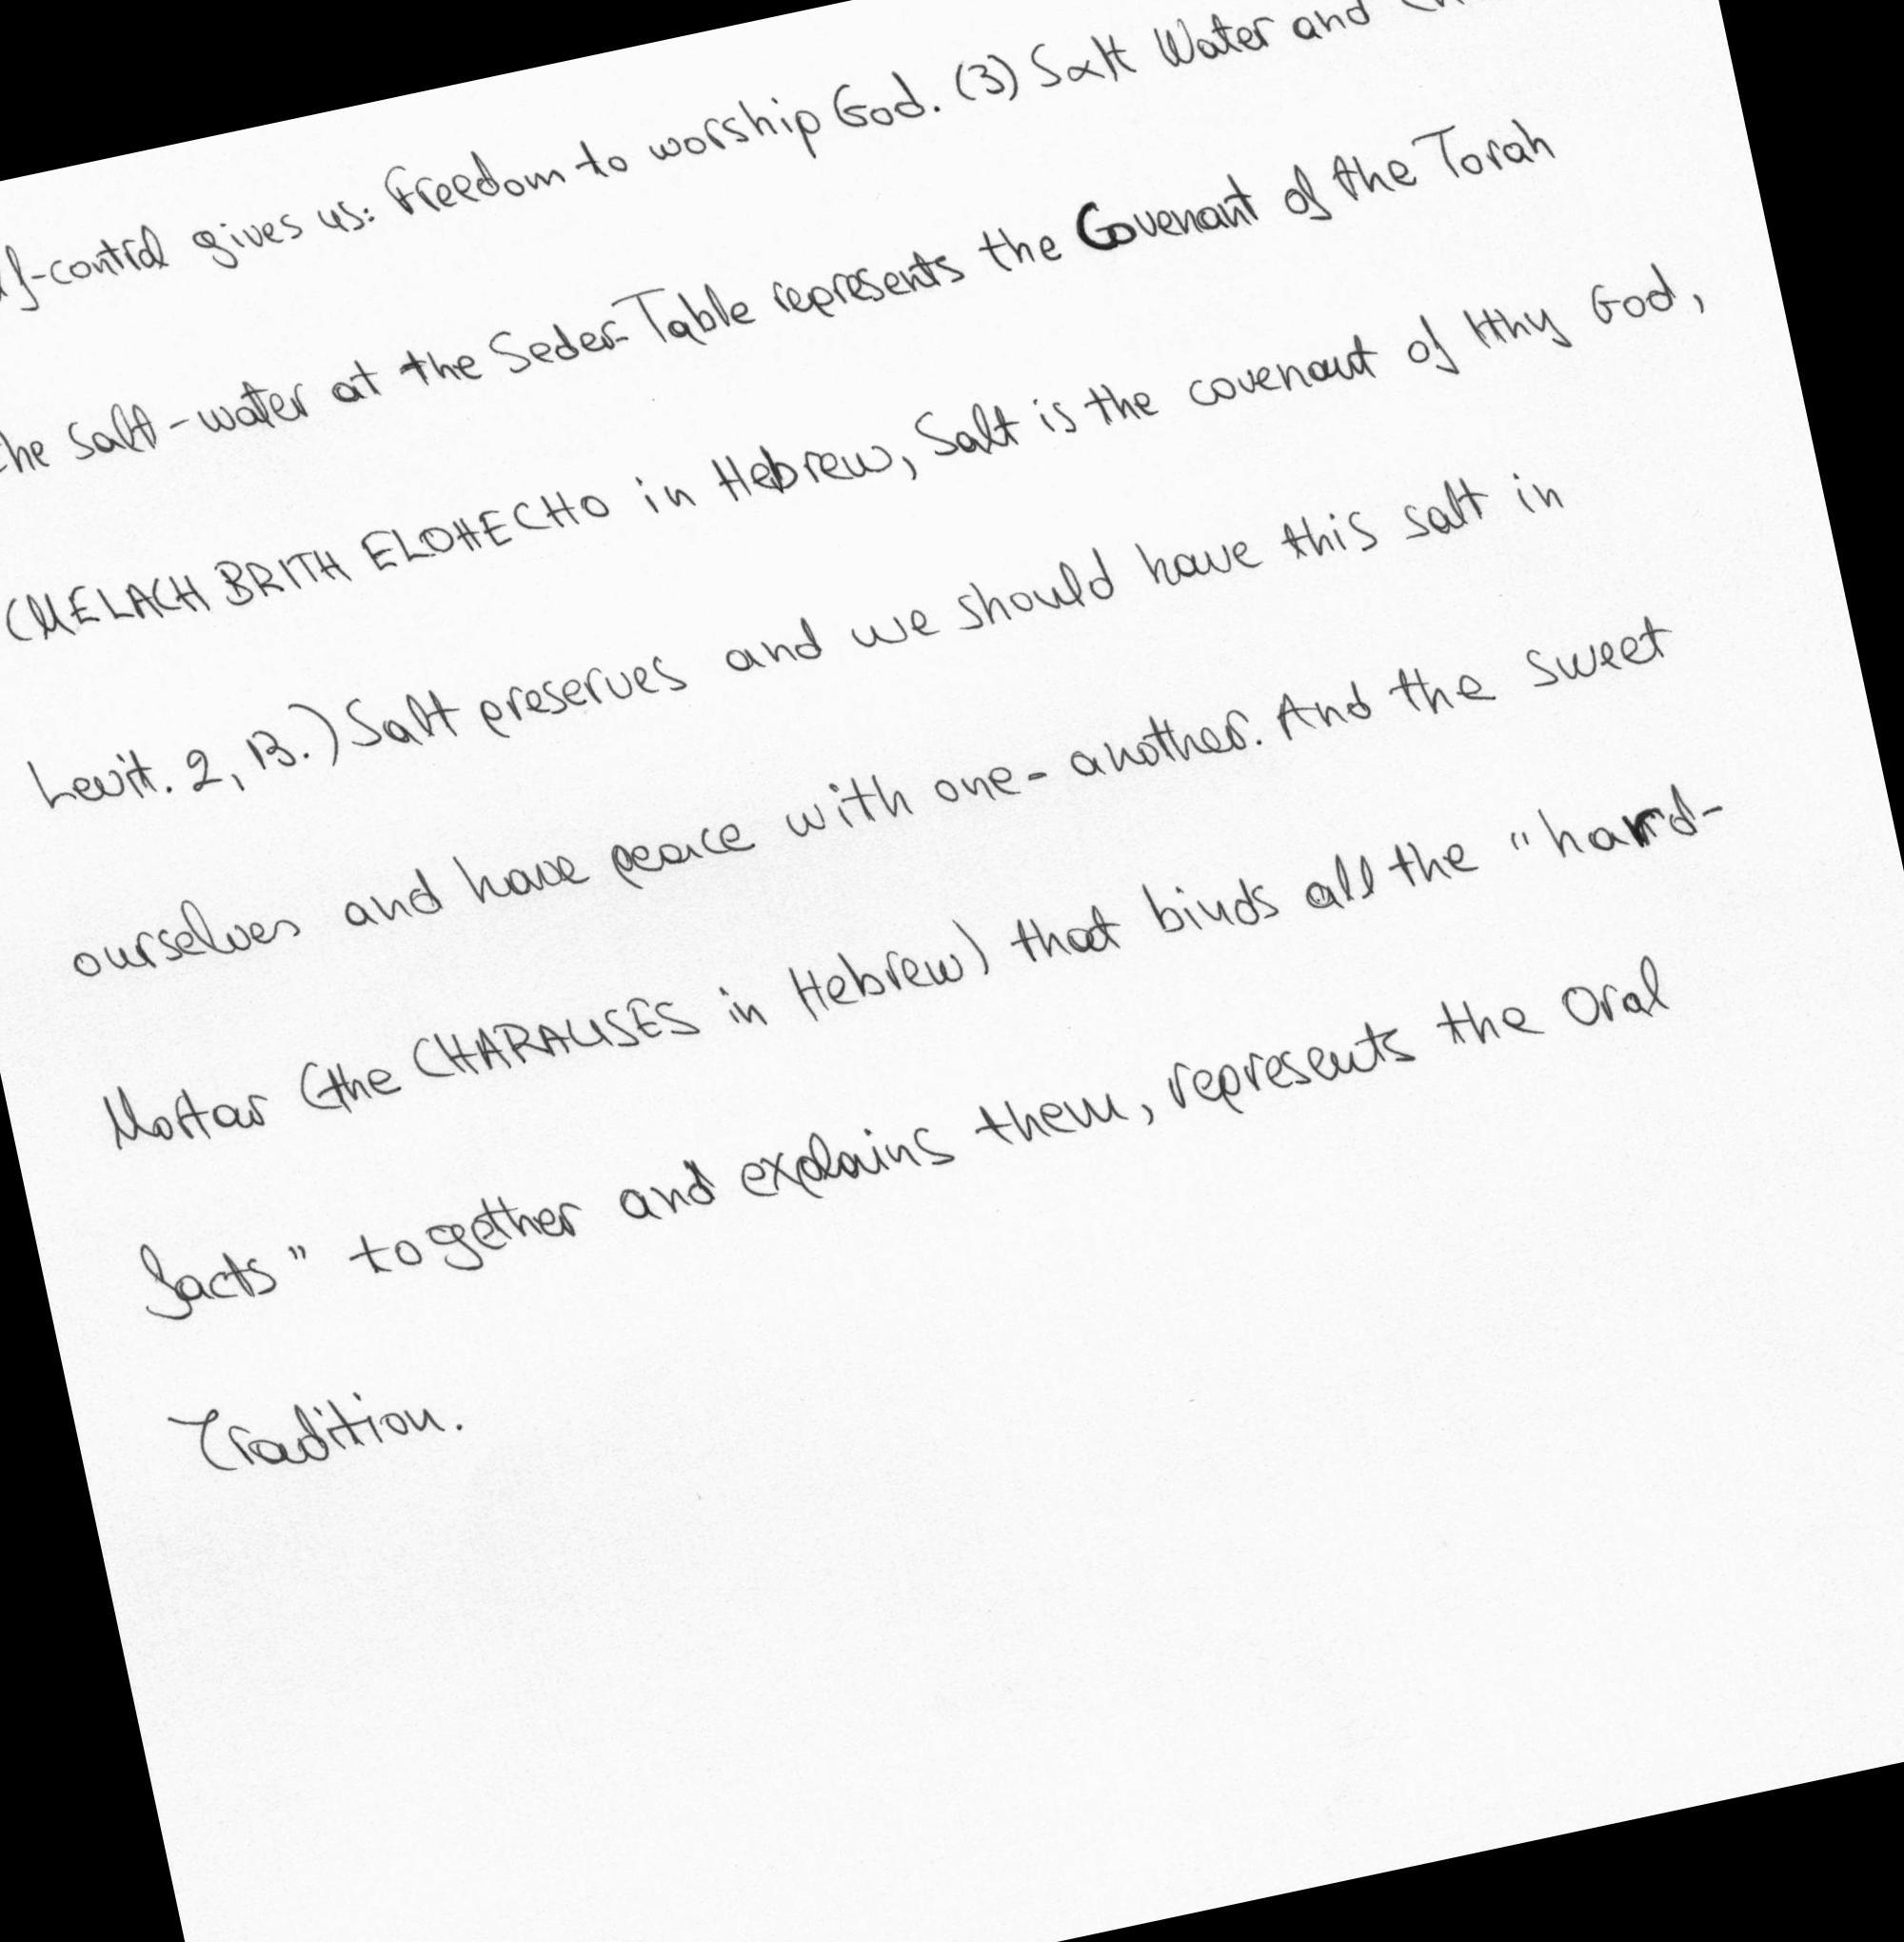 gives us: freedom to worship God. (3) Salt Water and
the salt-water at the Seder-Table represents the Covenant of the Torah
(MELACH BRITH ELOHECHO in Hebrew, Salt is the covenant of thy God,
Levit. 2, 13.) Salt preserves and we should have this salt in
ourselves and have peace with one-another. And the sweet
Mortar (the CHARAUSES in Hebrew) that binds all the "hard-
facts" together and explains them, represents the Oral
Tradition.